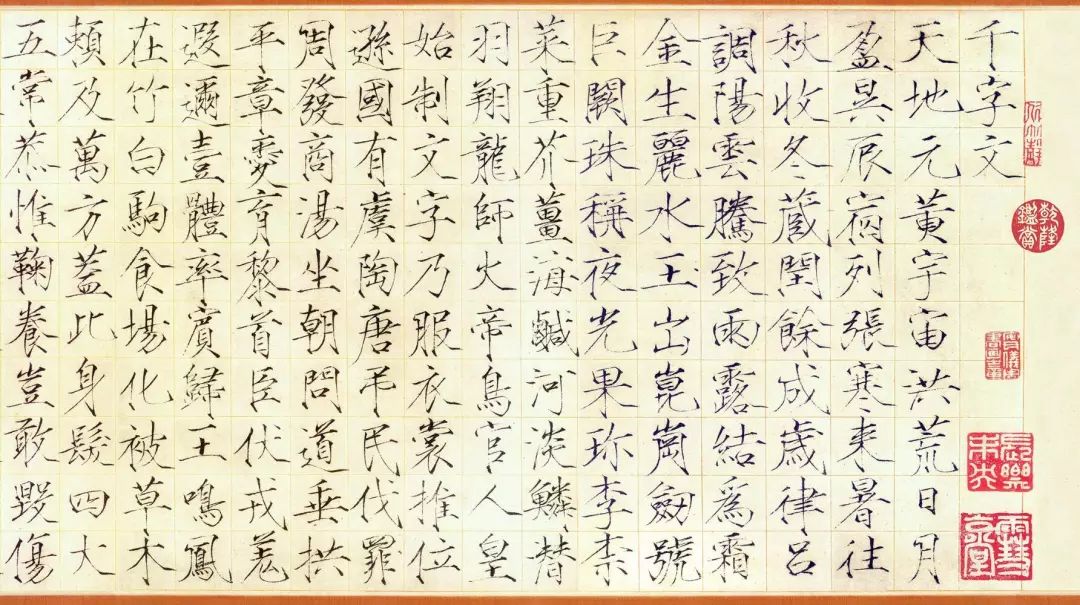 乾隆鑑賞
千字文
天地元黃宇宙洪荒日月
盈昃辰宿列張寒來暑往
秋收冬蔵閏餘成歲律呂
調陽雲騰致雨露結爲霜
金生麗水玉出崑崗劔號
巨闕珠稱夜光果珍李柰
菜重芥薑海鹹河淡鱗潛
羽翔龍師火帝鳥官人皇
始制文字乃服衣裳推位
遜國有虞陶唐弔民伐罪
周發商湯坐朝問道垂拱
平章愛育黎首臣伏戎羌
遐邇壹體率賓歸王鳴鳳
在竹白駒食場化被草木
賴及萬方蓋此身髮四大
五常恭惟鞠養豈敢毀傷